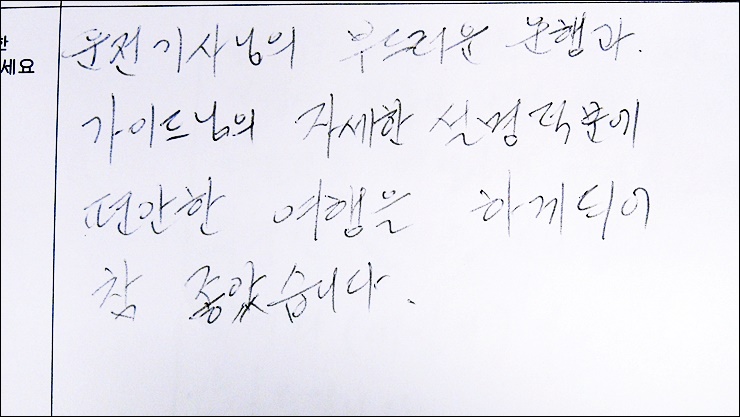 한
세요
운전기사님의 부드러운 운행과.
가이드님의 자세한 설명덕분에
편안한 여행을 하게되어
참 좋았습니다.